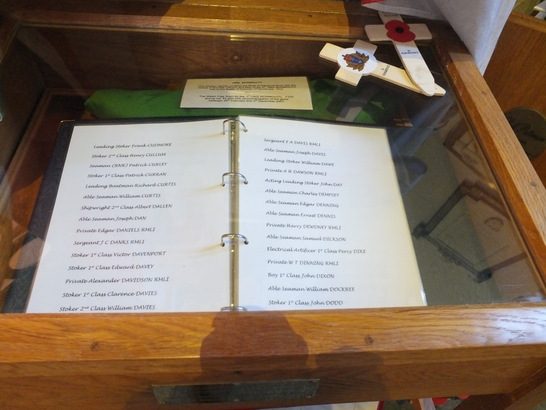 HMS MONMOUTH
Leading Stoker Frank CUDMORE
Stoker 2nd Class Henry CULLUM
Seaman (RNR) Patrick CURLEY
Stoker 1st Class Patrick CURRAN
Leading Boatman Richard CURTIS
Able Seaman William CURTIS
Shipwright 2nd Class Albert DALLEN
Able Seaman Joseph DAN
Private Edgar DANIELS RMLI
Sergeant J C DANKS RMLI
Stoker 1st Class Victor DAVENPORT
Stoker 1st Class Edward DAVEY
Private Alexander DAVIDSON RMLI
Stoker 1st Class Clarence DAVIES
Stoker 2nd Class William DAVIES
Sergeant F A DAVIS RMLI
Able Seaman Joseph DAVIS
Leading Stoker William
Private A R DAWSON RMLI
Acting Leading Stoker John DAY
Able Seaman Charles DEMPSEY
Able Seaman Edgar DENNING
Able Seaman Ernest DENNIS
Private Harry DEWDNEY RMLI
Able Seaman Samuel DICKSON
Electrical Artificer 1st Class Percy DIXE
Private W T DINNING RMLI
Boy 1st Class John DIXON
Able Seaman William DOCKREE
Stoker 1st Class John DODD